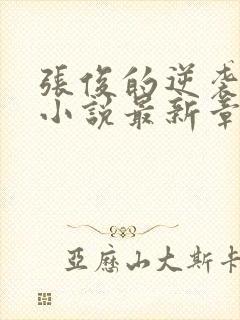 張俊的逆袭
小說最新章
亞歷山大斯卡